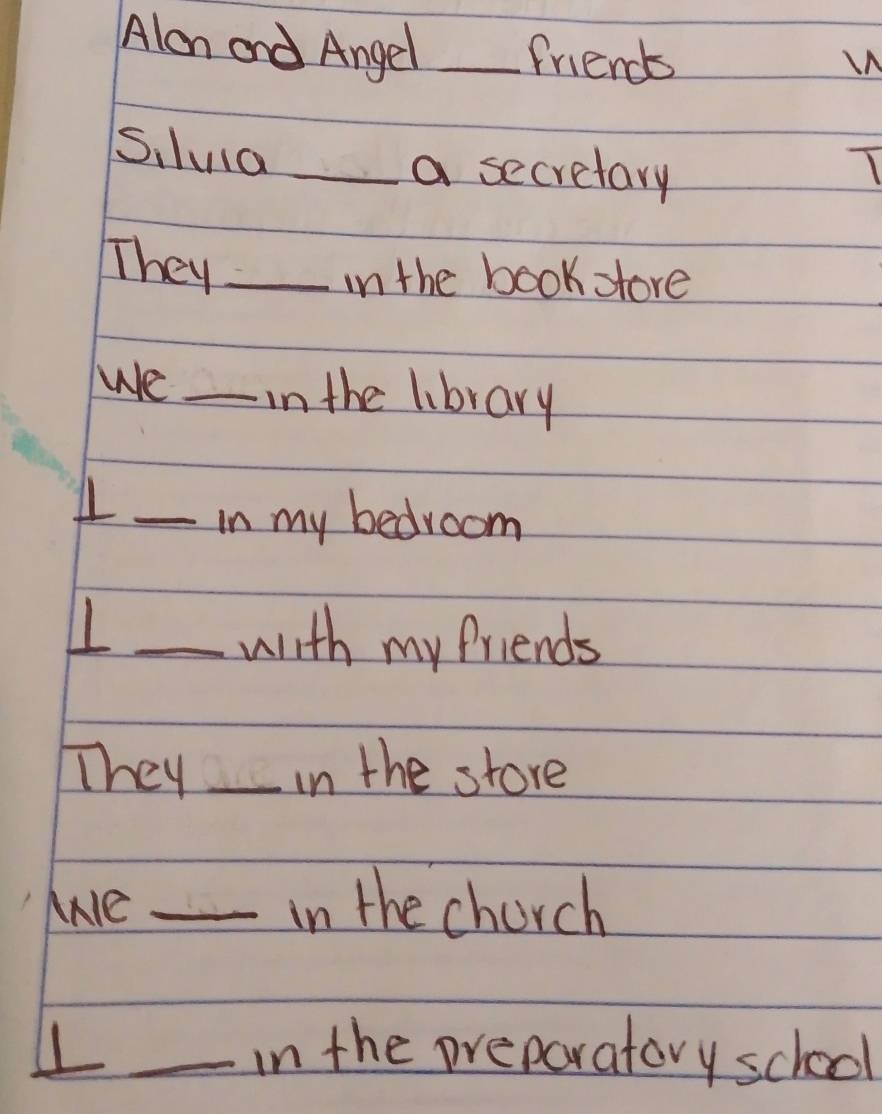 Alan and Angel ___ friends
Silvia ___ a secretary
They ___ in the bookstore
We ___ in the library
I ___ in my bedroom
I ___ with my friends
They ___ in the store
We ___ in the church
I ___ in the preparatory school